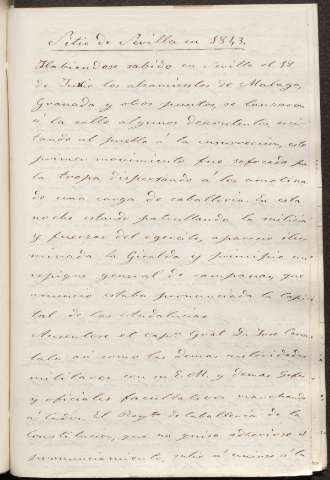 Sitio de Sevilla en 1843.
Habiendose sabido en Sevilla el 18
de Junio los alzamientos de Malaga,
Granada y otros puntos, se lanzaron
á la calle algunos descontentos exci
tando al pueblo á la insurreccion, este
primer movimiento fue sofocado pr
la tropa dispersando á los amotina
de una carga de caballeria. En esta
noche estando patrullando la milicia
y fuerzas del egercito, aparecio ilu
minada la Giralda y principió un
repique general de campanas, que
anuncio estaba pronunciada la Capi
tal de las Andalucias.
Ausentose el capn Gral D. Jose
tala asi como las demas autoridades
militares con su E. M. y demas Gefes
y oficiales facultativos marchando
á Cadiz. El Regto de Caballeria de la
Constitucion, que no quiso adherirse al
pronunciamiento, salio á unirse á la